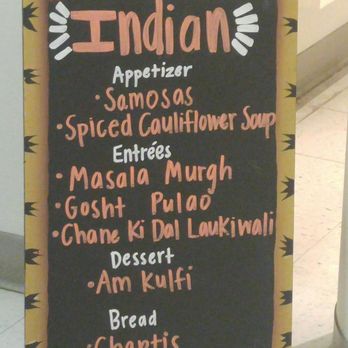 Indian
Appetizer
• Samosas
• Spiced Cauliflower Soup
Entrées
• Masala Murgh
• Gosht Pulao
• Chane Ki Dal Laukiwali
Dessert
• Am Kulfi
Bread
• Chaptis